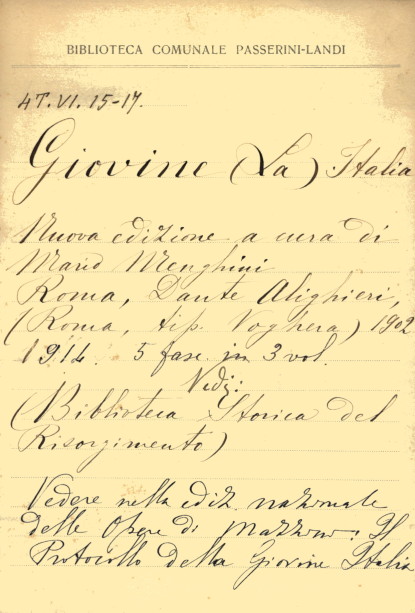 BIBLIOTECA COMUNALE PASSERINI-LANDI
4T. VI. 15-17.
Giovine (La) Italia
Nuova edizione a cura di
Mario Menghini
Roma, Dante Alighieri,
(Roma, tip. Voghera) 1902
1914. 5 fasc. in 3 vol.
Vedi:
(Biblioteca Storica del
Risorgimento)
Vedere nella ediz. nazionale
delle Opere di Mazzini: Il
Protocollo della Giovine Italia